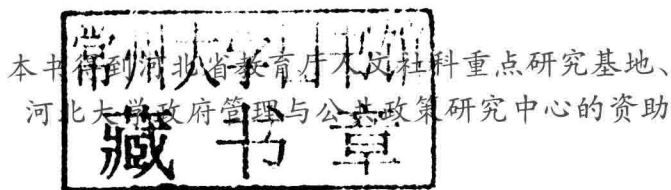 本书得到河北省教育厅人文社科重点研究基地、
河北大学政府管理与公共政策研究中心的资助
常州大学图书馆
藏书章